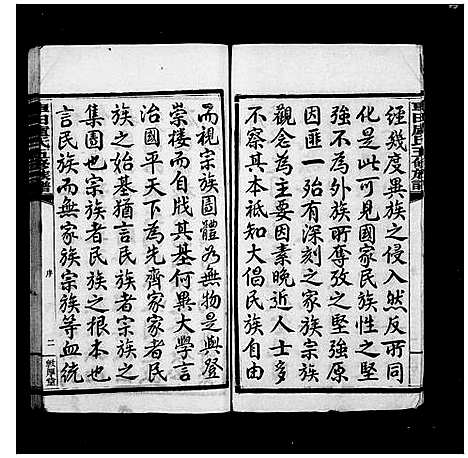 經幾度異族之侵入然反所同
化是此可見國家民族性之堅
強不為外族所奪攷之堅強原
因匪一尚有深刻之家族宗族
觀念為其主要因素晚近人士多
不察其本祇知大倡民族自由
而視宗族團體為無物是與登
崇樓而自戕其基何異大學言
治國平天下為先齊家家者民
族之始基猶言民族者宗族之
集團也宗族者民族之根本也
言民族而無家族宗族等血統
序
二
敦厚堂